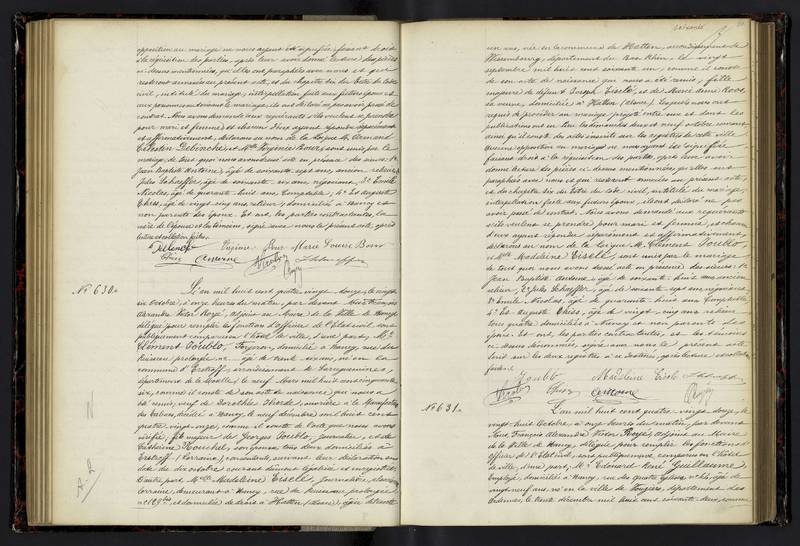 opposition au mariage ne nous ayant été signifiée faisant droit
à la réquisition des parties, après leur avoir donné lecture des pièces
ci-dessus mentionnées, qu'elles ont paraphées avec nous et qui
resteront annexées au présent acte, et du chapitre six du titre du Code
civil, intitulé du mariage, interpellation faite aux futurs époux et
aux personnes autorisant le mariage, ils ont déclaré ne pas avoir passé de
contrat. Nous avons demandé aux requérants s'ils veulent se prendre
pour mari et femme, et chacun d'eux ayant répondu séparément
et affirmativement, déclarons au nom de la loi que M. Armand
Célestin et Mlle Virginie Bour sont unis par le
mariage, de tout quoi nous avons dressé acte en présence des sieurs: 1°
Jean Baptiste Antoine, âgé de soixante sept ans, ancien relieur, 2°
Jules Schaeffer, âgé de soixante six ans, rémouleur, 3° Emile
Nicolas, âgé de quarante huit ans, Comptable, 4° Et Auguste
Thiss, âgé de vingt cinq ans, domiciliés à Nancy et
non parents des époux. Et ont, les parties contractantes, la
mère de l'épouse et les témoins, signé avec nous le présent acte, après
lecture et collation faites.
Virginie Bour Marie Louise Bour
Thiss Antoine Nicolas
N° 630.
L'an mil huit cent quatre vingt douze, le vingt
six Octobre, à onze heures du matin, par devant Nous François
Alexandre Victor Rozé, adjoint au Maire de la Ville de Nancy
délégué pour remplir les fonctions d'officier de l'état civil sont
publiquement comparus à l'hôtel de ville, d'une part, M.
Clément Foublo, domicilié à Nancy, rue du
Ruisseau prolongée n° âgé de trente six ans, né en la
commune d'Erstroff, arrondissement de Sarreguemines,
département de la Moselle, le neuf Mars mil huit cent cinquante
six, comme il conste de son acte de naissance qui nous a
été remis, veuf de Dorothée, ouvrière à la Manufacture
des tabacs, décédée à Nancy, le neuf décembre mil huit cent
quatre vingt onze, comme il conste de l'acte que nous avons
vérifié, fils majeur de Georges Foublo, journalier, et de
Catherine, son épouse tous deux domiciliés à
Erstroff (Lorraine), consentants, suivant leur déclaration en
date du dix octobre courant dûment légalisée et enregistrée
L'autre part Mlle Madeleine Eiselé, journalière,
Lorraine, demeurant à Nancy, rue du Ruisseau prolongée
et domiciliée de droit à Hatten (Alsace), âgée de trente
un ans, née en la commune de Hatten, arrondissement de
Wissembourg, département du Bas Rhin, le vingt
septembre mil huit cent soixante un, comme il conste
de son acte de naissance qui nous a été remis, fille
majeure de défunt Joseph Eiselé, et de Marie Anne Roos,
sa veuve, domiciliée à Hatten (Alsace). Lesquels nous ont
requis de procéder au mariage projeté entre eux et dont les
publications ont eu lieu les dimanches deux et neuf octobre courant
ainsi qu'il conste des actes inscrits sur les registres de cette ville
Aucune opposition au mariage ne nous ayant été signifiée
faisant droit à la réquisition des parties, après leur avoir
donné lecture des pièces ci-dessus mentionnées qu'elles ont
paraphées avec nous et qui resteront annexées au présent acte,
et du chapitre six du titre du Code civil, intitulé du mariage,
interpellation faite aux futurs époux, ils ont déclaré ne pas
avoir passé de contrat. Nous avons demandé aux requérants
s'ils veulent se prendre pour mari et femme, et chacun
d'eux ayant répondu séparément et affirmativement,
déclarons au nom de la loi que M. Clément Foublo,
et Mlle Madeleine Eiselé, sont unis par le mariage
de tout quoi nous avons dressé acte en présence des sieurs: 1°
Jean Baptiste Antoine, âgé de soixante sept ans, ancien
relieur, 2° Jules Schaeffer, âgé de soixante six ans, rémouleur
3° Emile Nicolas, âgé de quarante huit ans, Comptable
4° Et Auguste Thiss, âgé de vingt cinq ans
tous quatre domiciliés à Nancy et non parents des
époux. Et ont, les parties contractantes, et les témoins
ci-dessus dénommés, signé avec nous le présent acte,
écrit sur les deux registres à ce destinés, après lecture et collation
faites.
Foubló Madeleine Eiselé
Nicolas Thiss Antoine
N° 631.
L'an mil huit cent quatre vingt douze, le
vingt huit Octobre, à onze heures du matin, par devant
Nous François Alexandre Victor Rozé, adjoint au Maire
de la Ville de Nancy, délégué pour remplir les fonctions d'
officier de l'état civil, sont publiquement comparus en l'hôtel
de ville, d'une part, M. Edouard René Guillaume,
Employé, domicilié à Nancy, rue des quatre églises, âgé de
vingt neuf ans, né en la ville de Vouziers, département des
Ardennes, le trente décembre mil huit cent soixante deux, comme